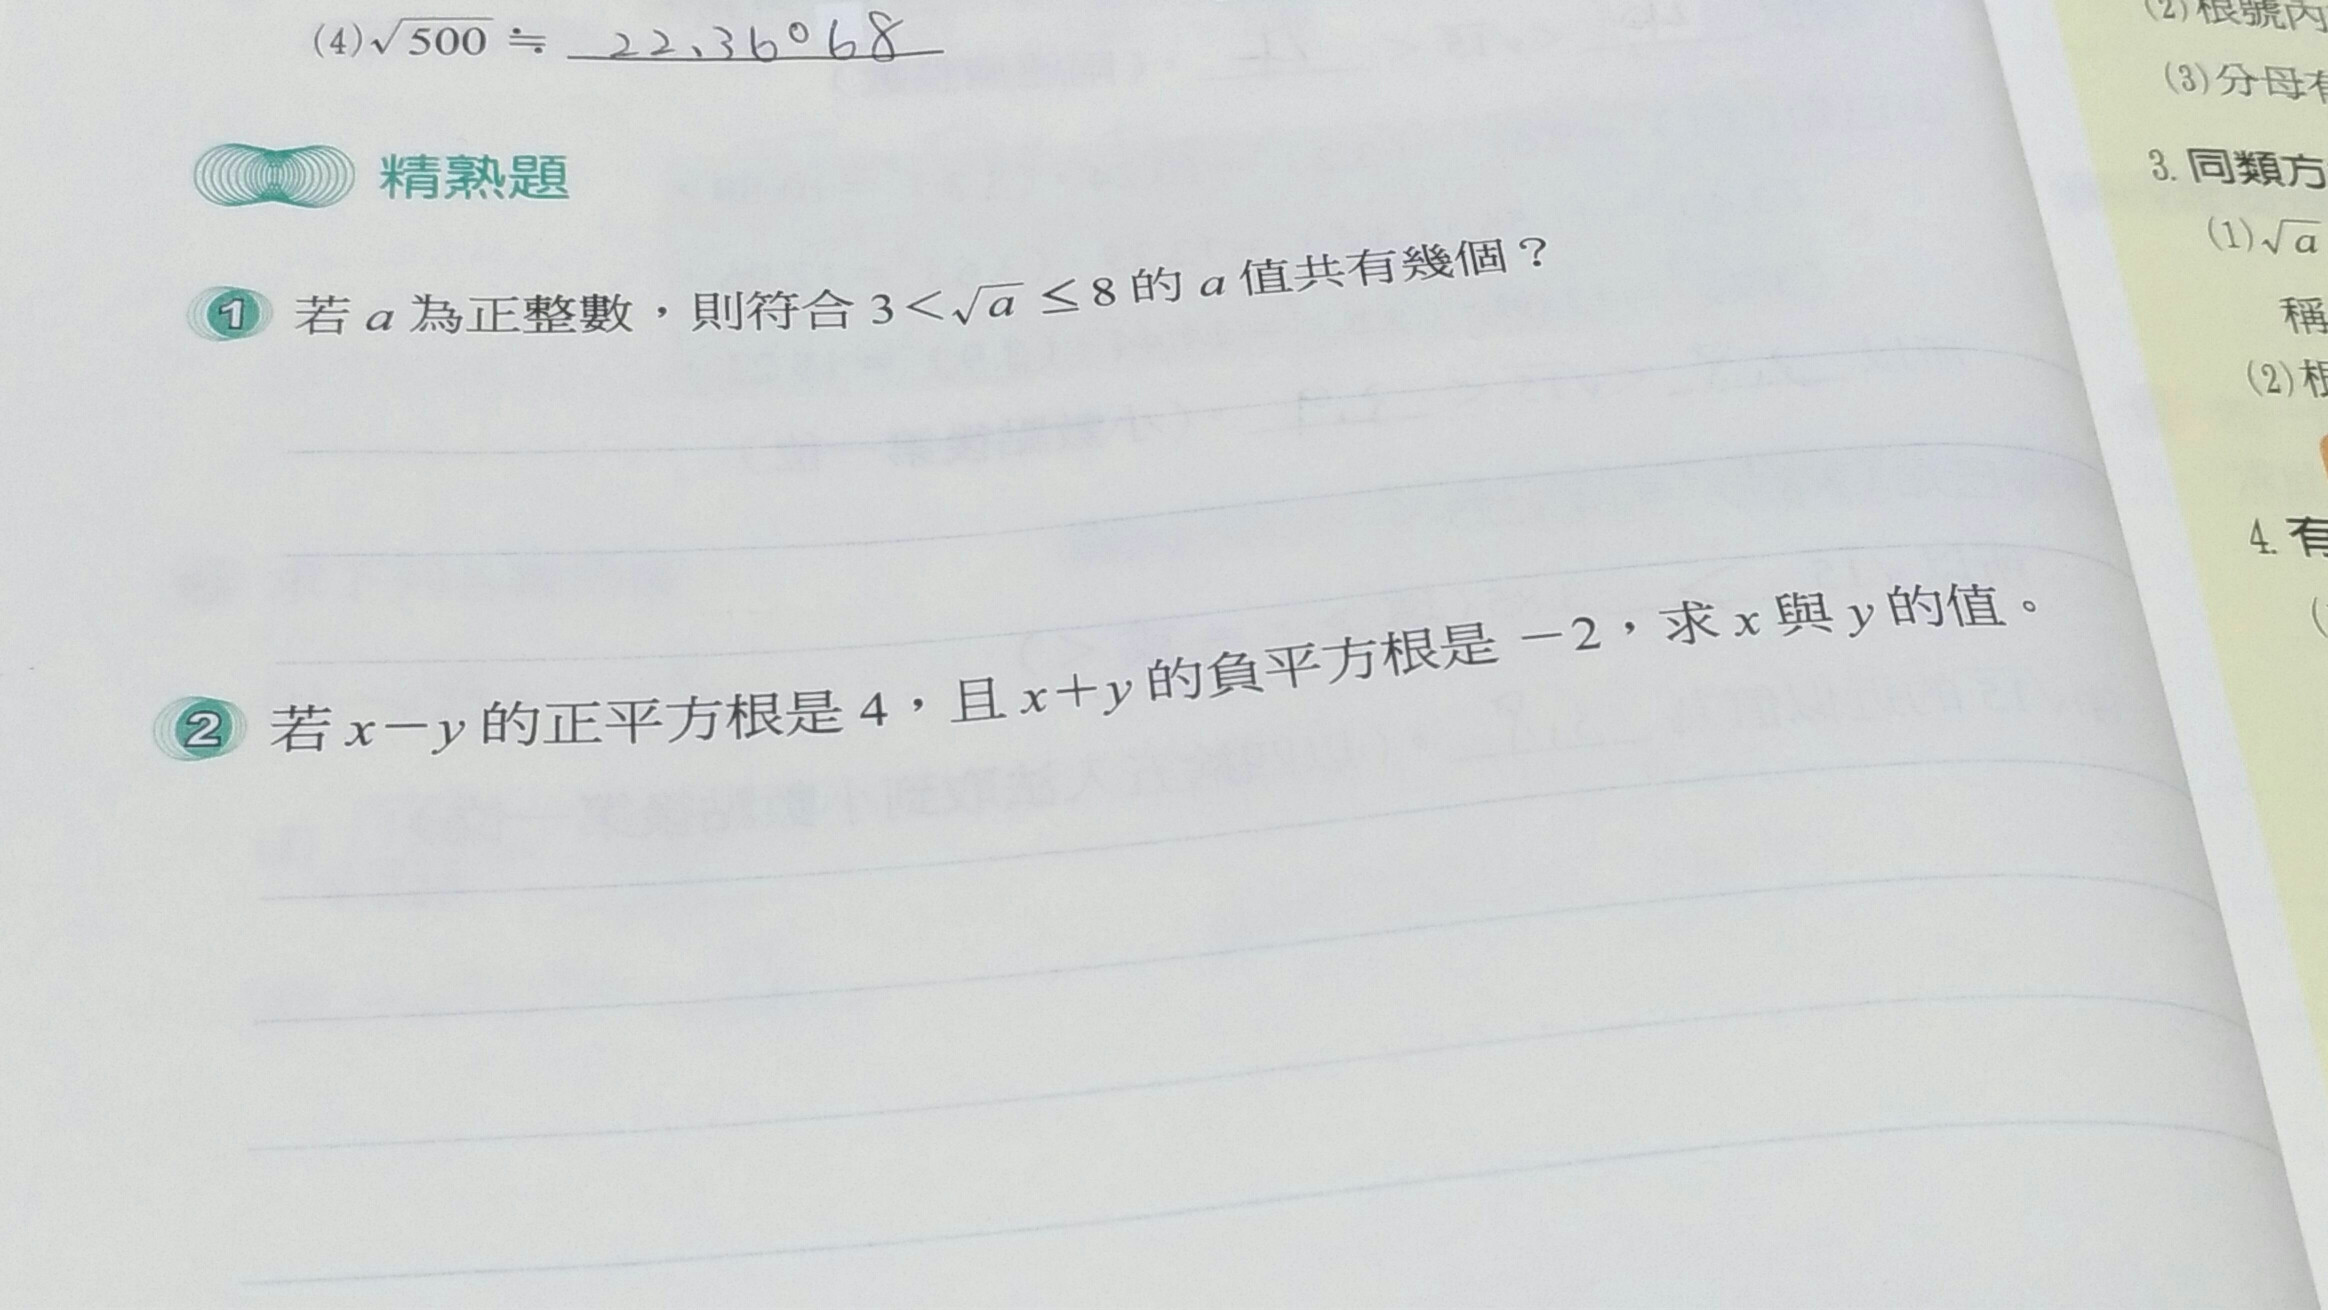 (4)√500 ≒ 22.36068
精熟題
1 若 a 為正整數，則符合 3<√a ≤8 的 a 值共有幾個？
2 若 x－y 的正平方根是 4，且 x＋y 的負平方根是 －2，求 x 與 y 的值。
(2)根號內
(3)分母有
3. 同類方
(1)√a
稱
(2)根
4. 有